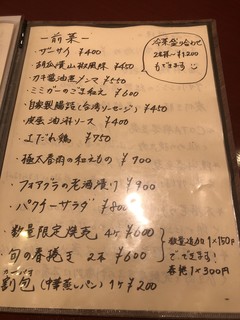 ー前菜ー
・ザーサイ ¥400
・胡瓜演山椒風味 ¥450
・カキ醤油蒸メンマ ¥550
・ミミガーのごま和え ¥600
・自家製腸詰(台湾ソーセージ) ¥450
・皮蛋 油淋ソース ¥400
・よだれ鶏 ¥750
・極太春雨の和えもの ¥700
・フォアグラの老酒漬け ¥900
・パクチーサラダ ¥800
数量限定焼売 4ケ ¥600
旬の春捲き 2本 ¥600
割包(中華蒸しパン) 1ケ ¥200
冷菜盛り合わせ
2名様〜 ¥1200
もできます
数量追加1×150円
でできます!
春捲1×300円